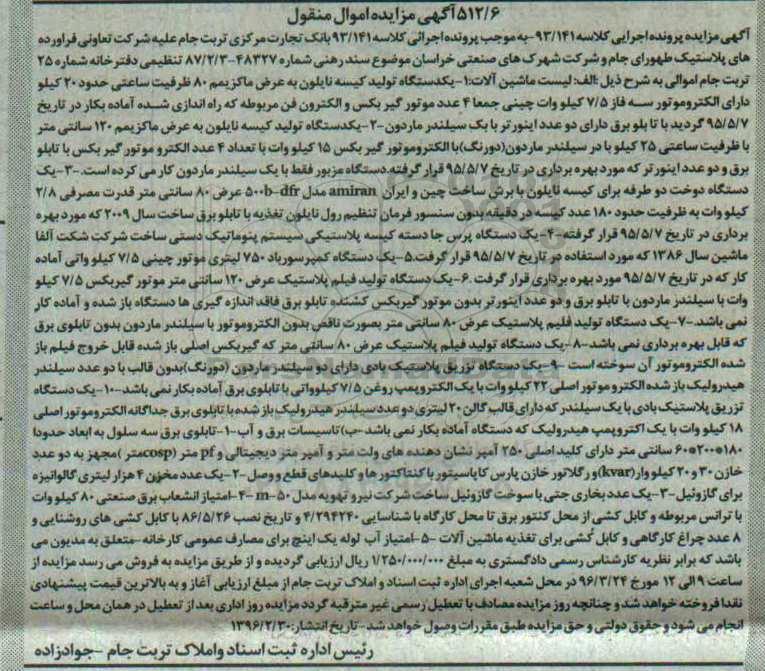 ۵۱۲/۶ آگهی مزایده اموال منقول
آگهی مزایده پرونده اجرایی کلاسه ۹۳/۱۴۱-به موجب پرونده اجرائی کلاسه ۹۳/۱۴۱ بانک تجارت مرکزی تربت جام علیه شرکت تعاونی فراورده
های پلاستیک طهورای جام و شرکت شهرک های صنعتی خراسان موضوع سند رهنی شماره ۴۸۳۲۷-۸۷/۲/۳ تنظیمی دفترخانه شماره ۲۵
تربت جام اموالی به شرح ذیل :الف: لیست ماشین آلات:۱-یکدستگاه تولید کیسه نایلون به عرض ماکزیمم ۸۰ ظرفیت ساعتی حدود ۲۰ کیلو
دارای الکتروموتور سه فاز ۷/۵ کیلو وات چینی جمعا ۴ عدد موتور گیر بکس و الکترون فن مربوطه که راه اندازی شده آماده بکار در تاریخ
۹۵/۵/۷ گردید با تابلو برق دارای دو عدد اینورتر با یک سیلندر ماردون-۲-یکدستگاه تولید کیسه نایلون به عرض ماکزیمم ۱۲۰ سانتی متر
با ظرفیت ساعتی ۲۵ کیلو با در سیلندر ماردون(دورنگ)با الکتروموتور گیر بکس ۱۵ کیلو وات با تعداد ۴ عدد الکترو موتور گیر بکس با تابلو
برق و دو عدد اینورتر که مورد بهره برداری در تاریخ ۹۵/۵/۷ قرار گرفته.دستگاه مزبور فقط با یک سیلندر ماردون کار می کرده است.-۳-یک
دستگاه دوخت دو طرفه برای کیسه نایلون با برش ساخت چین و ایران amiran مدل ۵۰۰b-dfr عرض ۸۰ سانتی متر قدرت مصرفی ۲/۸
کیلو وات به ظرفیت حدود ۱۸۰ عدد کیسه در دقیقه بدون سنسور فرمان تنظیم رول نایلون تغذیه با تابلو برق ساخت سال ۲۰۰۹ که مورد بهره
برداری در تاریخ ۹۵/۵/۷ قرار گرفته-۴-یک دستگاه پرس جا دسته کیسه پلاستیکی سیستم پنوماتیک دستی ساخت شرکت شکت آلفا
ماشین سال ۱۳۸۶ که مورد استفاده در تاریخ ۹۵/۵/۷ قرار گرفت.۵-یک دستگاه کمپرسورباد ۷۵۰ لیتری موتور چینی ۷/۵ کیلو واتی آماده
کار که در تاریخ ۹۵/۵/۷ مورد بهره برداری قرار گرفت .۶-یک دستگاه تولید فیلم پلاستیک عرض ۱۲۰ سانتی متر موتور گیربکس ۷/۵ کیلو
وات با سیلندر ماردون با تابلو برق و دو عدد اینورتر بدون موتور گیربکس کشنده تابلو برق فاقد اندازه گیری ها دستگاه باز شده و آماده کار
نمی باشد.-۷-یک دستگاه تولید فلیم پلاستیک عرض ۸۰ سانتی متر بصورت ناقص بدون الکتروموتور با سیلندر ماردون بدون تابلوی برق
که قابل بهره برداری نمی باشد-۸-یک دستگاه تولید فیلم پلاستیک عرض ۸۰ سانتی متر که گیربکس اصلی باز شده قابل خروج فیلم باز
شده الکتروموتور آن سوخته است -۹-یک دستگاه تزریق پلاستیک بادی دارای دو سیلندر ماردون (دورنگ)بدون قالب با دو عدد سیلندر
هیدرولیک باز شده الکترو موتور اصلی ۲۲ کیلو وات با یک الکتروپمپ روغن ۷/۵ کیلوواتی با تابلوی برق آماده بکار نمی باشد-۱۰-یک دستگاه
تزریق پلاستیک بادی با یک سیلندر که دارای قالب گالن ۲۰ لیتری دو عدد سیلندر هیدرولیک باز شده با تابلوی برق جداگانه الکتروموتور اصلی
۱۸ کیلو وات با یک الکتروپمپ هیدرولیک که دستگاه آماده بکار نمی باشد-ب)تاسیسات برق و آب-۱-تابلوی برق سه سلول به ابعاد حدودا
۱۸۰*۲۰۰*۶۰ سانتی متر دارای کلید اصلی ۲۵۰ آمپر نشان دهنده های ولت متر و آمپر متر دیجیتالی و pf متر (cospمتر )مجهز به دو عدد
خازن ۳۰ و ۲۰ کیلو وار(kvar)و رگلاتور خازن پارس کاپاسیتور با کنتاکتورها و کلیدهای قطع و وصل-۲-یک عدد مخزن ۴ هزار لیتری گالوانیزه
برای گازوئیل-۳-یک عدد بخاری جتی با سوخت گازوئیل ساخت شرکت نیرو تهویه مدل m-۵۰-۴-امتیاز انشعاب برق صنعتی ۸۰ کیلو وات
با ترانس مربوطه و کابل کشی از محل کنتور برق تا محل کارگاه با شناسایی ۴/۲۹۴۲۴۰ و تاریخ نصب ۸۶/۵/۲۶ با کابل کشی های روشنایی و
۸ عدد چراغ کارگاهی و کابل کشی برای تغذیه ماشین آلات -۵-امتیاز آب لوله یک اینچ برای مصارف عمومی کارخانه-متعلق به مدیون می
باشد که برابر نظریه کارشناس رسمی دادگستری به مبلغ ۱/۲۵۰/۰۰۰/۰۰۰ ریال ارزیابی گردیده و از طریق مزایده به فروش می رسد مزایده از
ساعت ۹ الی ۱۲ مورخ ۹۶/۳/۲۴ در محل شعبه اجرای اداره ثبت اسناد و املاک تربت جام از مبلغ ارزیابی آغاز و به بالاترین قیمت پیشنهادی
نقدا فروخته خواهد شد و چنانچه روز مزایده مصادف با تعطیل رسمی غیر مترقبه گردد مزایده روز اداری بعد از تعطیل در همان محل و ساعت
انجام می شود و حقوق دولتی و حق مزایده طبق مقررات وصول خواهد شد-تاریخ انتشار:۱۳۹۶/۲/۳۰
رئیس اداره ثبت اسناد واملاک تربت جام -جوادزاده